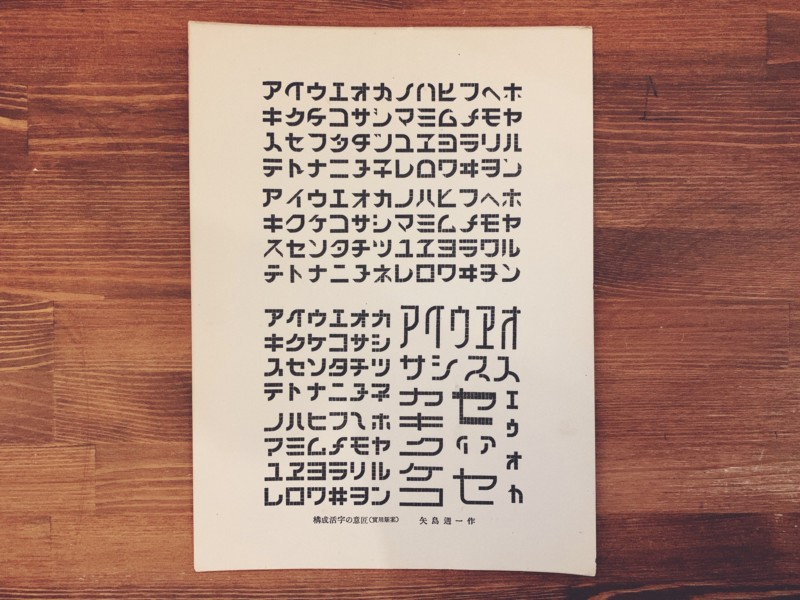 アイウエオカノハヒフヘホ
キクケコサシマミムメモヤ
スセソタチツユヱヨラリル
テトナニヌネレロワヰヲン
アイウエオカノハヒフヘホ
キクケコサシマミムメモヤ
スセソタチツユヱヨラリル
テトナニヌネレロワヰヲン
アイウエオカ
キクケコサシ
スセソタチツ
テトナニヌネ
ノハヒフヘホ
マミムメモヤ
ユヱヨラリル
レロワヰヲン
アイウエオ
サシスス
カキクケコ
セ
ィァ
セ
ェゥォヵ
構成活字の意匠(實用新案) 矢島週一作